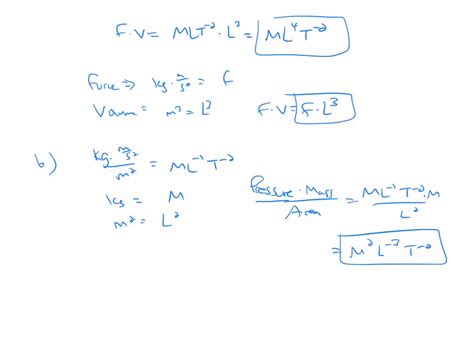 F·V = MLT⁻²·L³ = ML⁴T⁻²
Force ⇒ kg·m/s² = F
Volume = m³ = L³
F·V = F·L³
b) kg·m/s² / m² = ML⁻¹T⁻²
kg = M
m² = L²
Pressure·Mass / Area = ML⁻¹T⁻²·M / L²
= M²L⁻³T⁻²